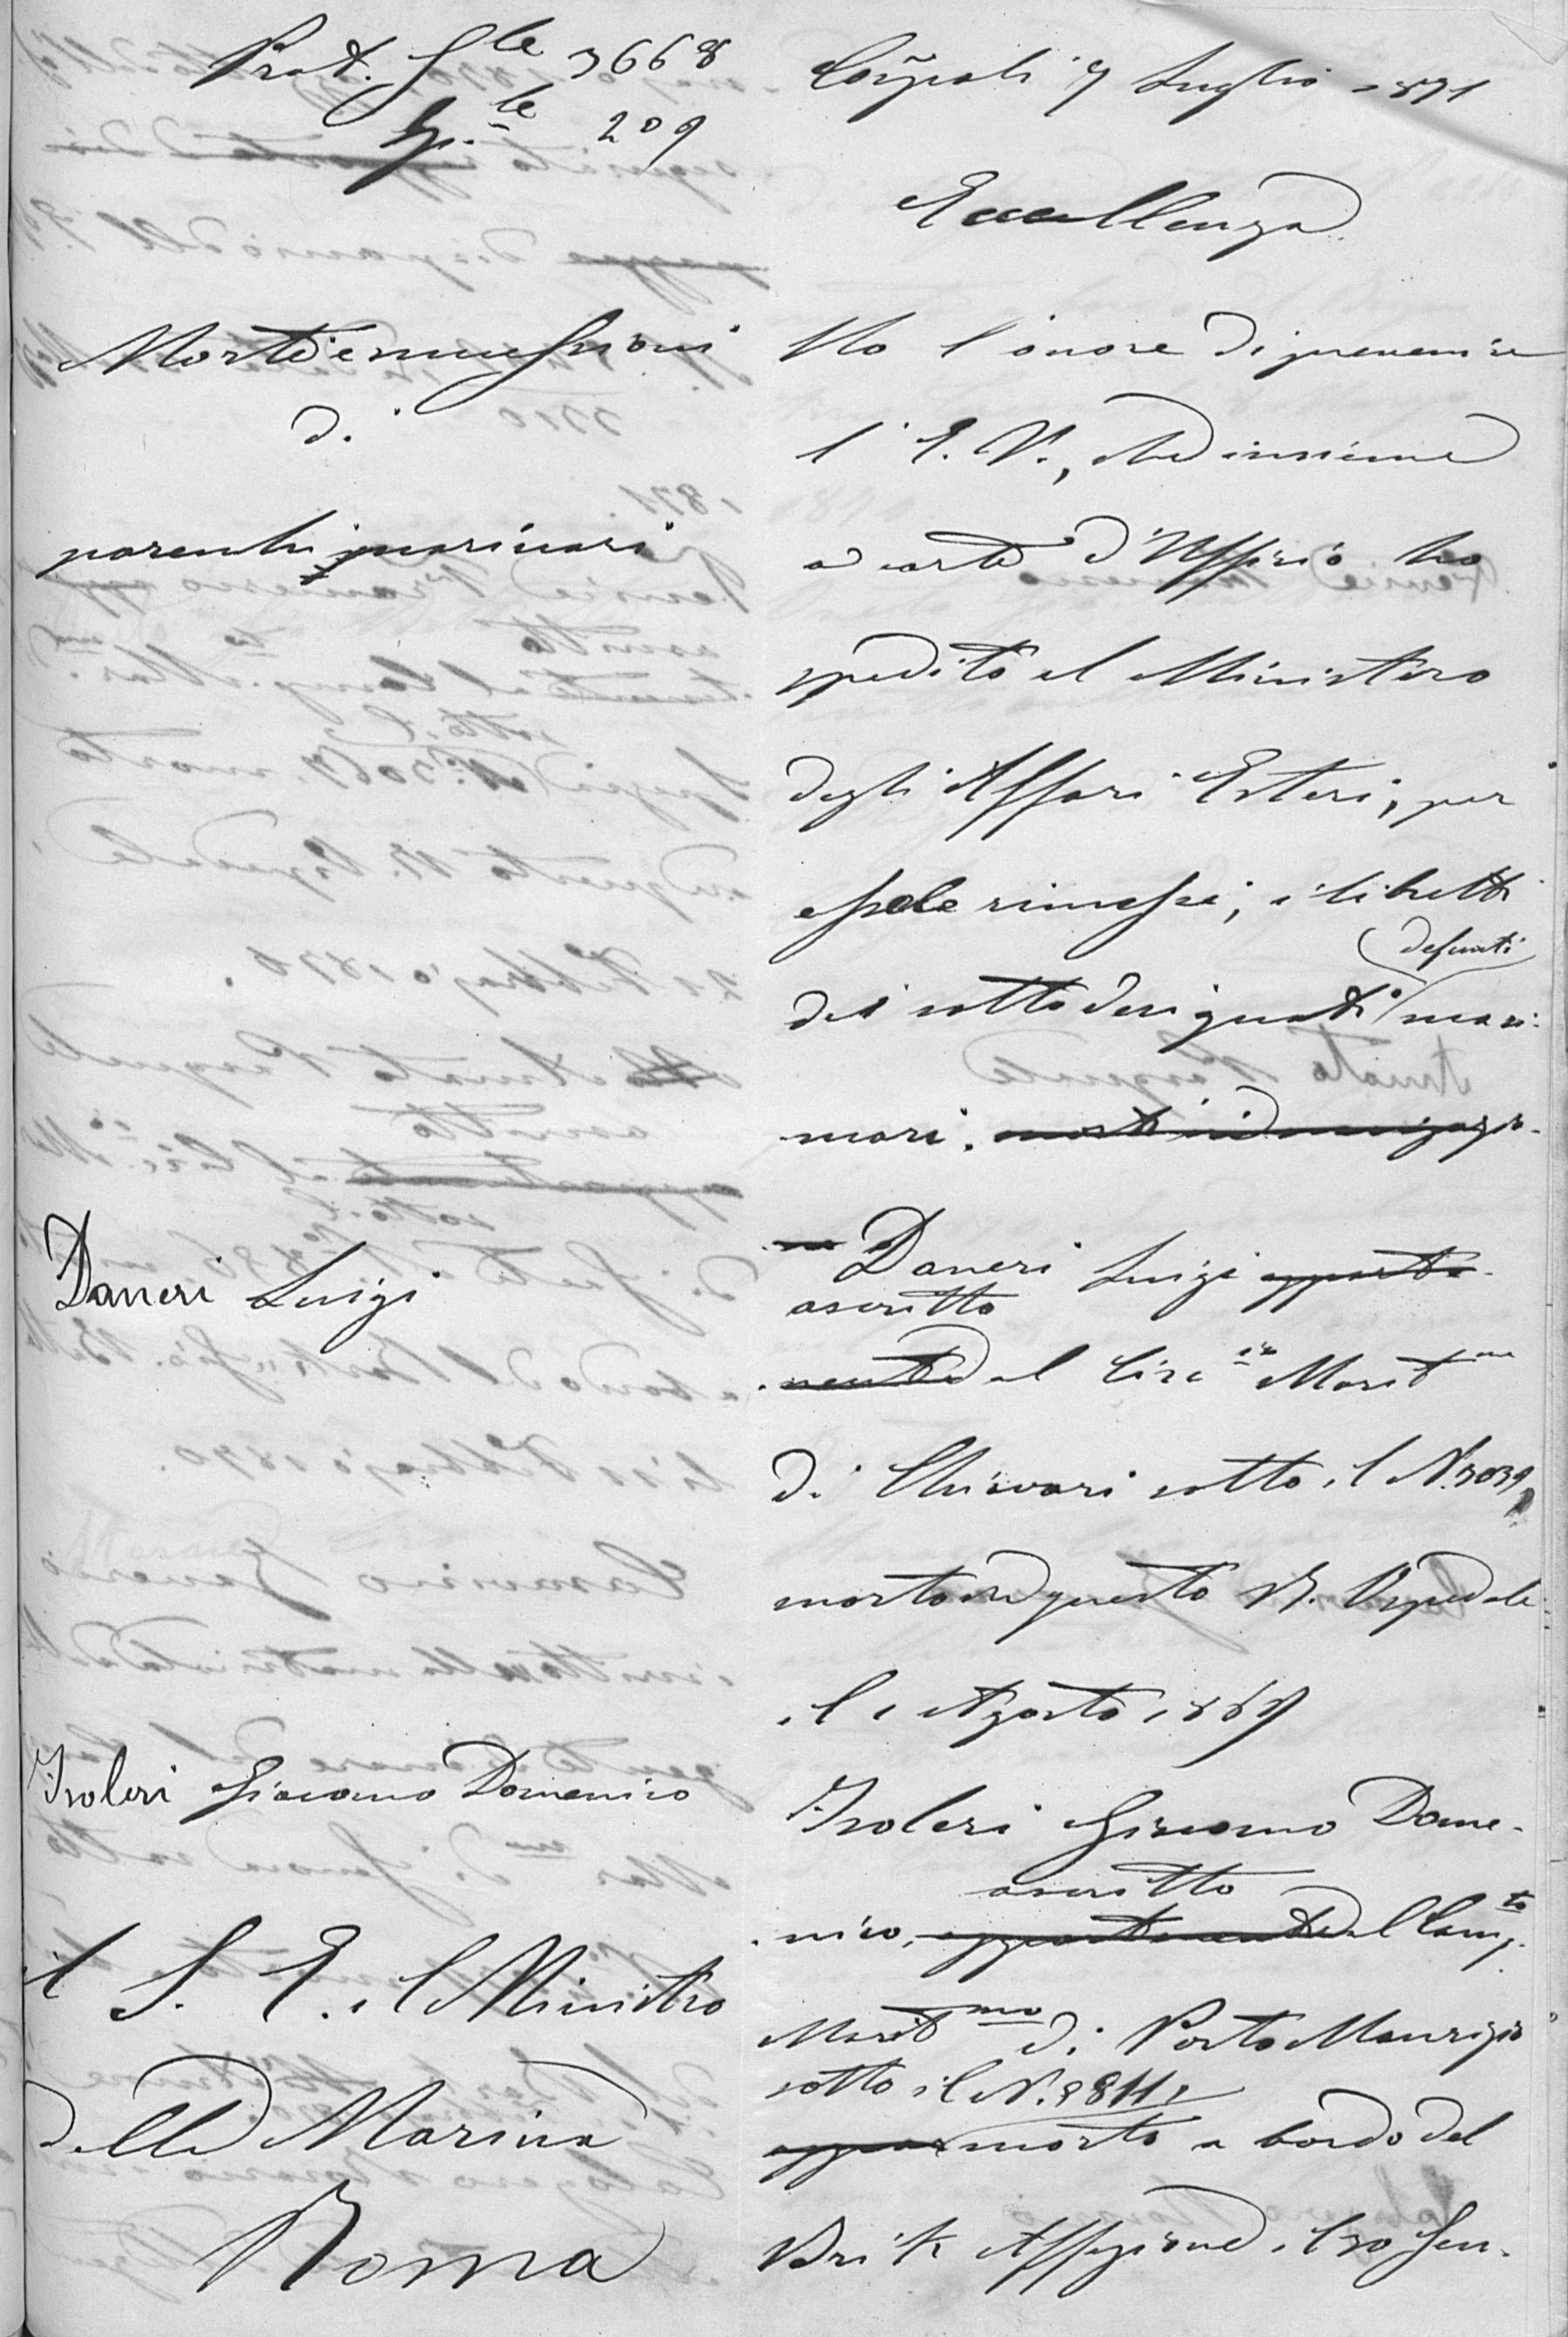 Prot. Gle 3668
Sp.le 209
Morte e successioni
di
parecchi marinari
Daneri Luigi
Isoleri Giacomo Domenico
A S. E. il Ministro
della Marina
Roma
Costpoli 7 Luglio 1871
Eccellenza
Ho l'onore di prevenire
l'E. V., che insieme
a carte d'Uffizio ho
spedito al Ministero
degli Affari Esteri, per
esserle rimessi, i libretti
defunti
dei sotto designati mari-
nari. morti in navigazio-
ne Daneri Luigi apparte-
ascritto
nente al Circ.rio Maritmo
di Chiavari sotto il N. 3039
morto in questo R. Ospedale
il 1 Agosto 1869
Isoleri Giacomo Dome-
ascritto
nico, appartenente al Comp.to
Maritmo di Porto Maurizio
sotto il N.
morto a bordo del
Brik Affezione il 30 Gen-